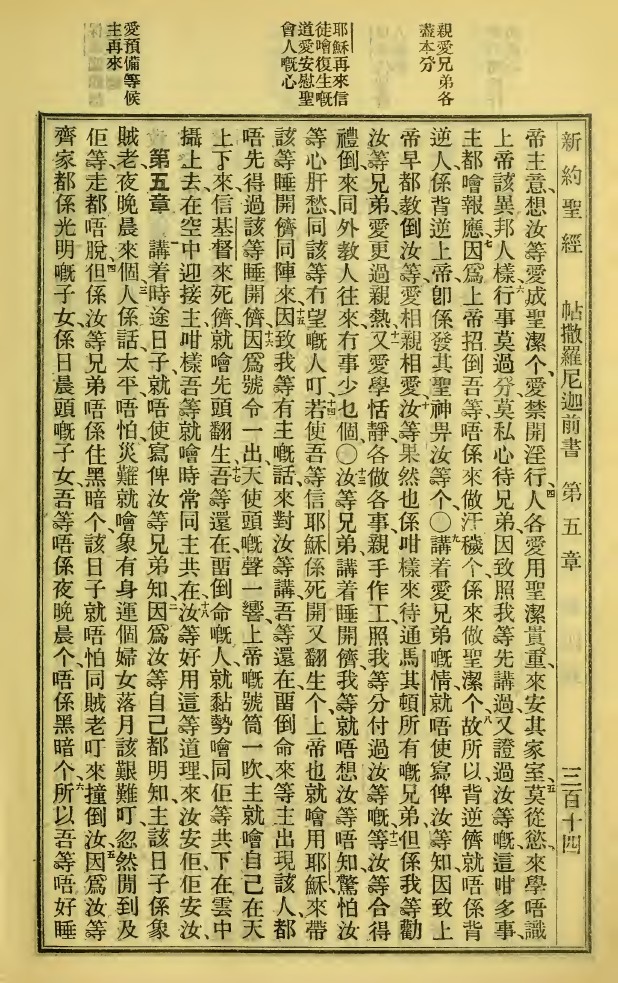 新約聖經 帖撒羅尼迦前書 第五章 三百十四
親愛兄弟各
盡本分
耶穌再來信
徒噲復生嘅
道愛安慰聖
會人嘅心
愛預備等候
主再來
帝主意、想汝等愛成聖潔个、愛禁開淫行、四人各愛用聖潔貴重、來安其家室、五莫從慾、來學唔識
上帝該異邦人樣、六行事莫過分、莫私心待兄弟、因致照我等先講過、又證過汝等嘅、這咁多事、
主都噲報應、七因爲上帝招倒吾等、唔係來做汙穢个、係來做聖潔个、八故所以背逆儕、就唔係背
逆人、係背逆上帝、卽係發其聖神畀汝等个、〇九講着愛兄弟嘅情、就唔使寫俾汝等知、因致上
帝早都教倒汝等、愛相親相愛、十汝等果然也係咁樣來待通馬其頓所有嘅兄弟、但係我等勸
汝等兄弟、愛更過親熱、十一又愛學恬靜、各做各事、親手作工、照我等分付過汝等嘅、十二等汝等合得
禮倒來同外教人往來、冇事少乜個、〇十三汝等兄弟、講着睡開儕、我等就唔想汝等唔知、驚怕汝
等心肝愁、同該等冇望嘅人叮、十四若使吾等信耶穌係死開又翻生个、上帝也就噲用耶穌、來帶
該等睡開儕同陣來、十五因致我等有主嘅話、來對汝等講、吾等還在畱倒命來等主出現該人、都
唔先得過該等睡開儕、十六因爲號令一出、天使頭嘅聲一響、上帝嘅號筒一吹、主就噲自己在天
上下來、信基督來死儕就噲先頭翻生、十七吾等還在畱倒命嘅人、就黏勢噲同佢等共下在雲中
攝上去、在空中迎接主、咁樣吾等就噲時常同主共在、十八汝等好用這等道理、來汝安佢佢安汝、
第五章 一講着時途日子、就唔使寫俾汝等兄弟知、二因爲汝等自己都明知、主該日子係象
賊老夜晚晨來個、三人係話太平唔怕災難、就噲象有身運個婦女、落月該艱難叮、忽然閒到及
佢等、走都唔脫、四但係汝等兄弟、唔係住黑暗个、該日子就唔怕同賊老叮來撞倒汝、五因爲汝等
齊家都係光明嘅子女、係日晨頭嘅子女、吾等唔係夜晚晨个、唔係黑暗个、六所以吾等唔好睡